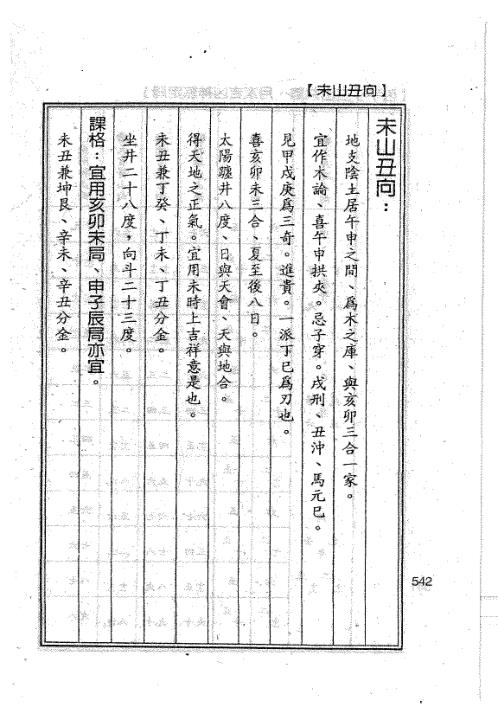 【未山丑向】
未山丑向：
地支陰土居午申之間、為木之庫、與亥卯三合一家。
宜作木論、喜午申拱夾。忌子穿。戌刑、丑沖、馬元巳。
見甲戊庚為三奇。進貴。一派丁巳為刃也。
喜亥卯未三合、夏至後八日。
太陽躔井八度、日與天會、天與地合。
得天地之正氣。宜用未時上吉祥意是也。
未丑兼丁癸、丁未、丁丑分金。
坐井二十八度，向斗二十三度。
課格：宜用亥卯未局、申子辰局亦宜。
未丑兼坤艮、辛未、辛丑分金。
542